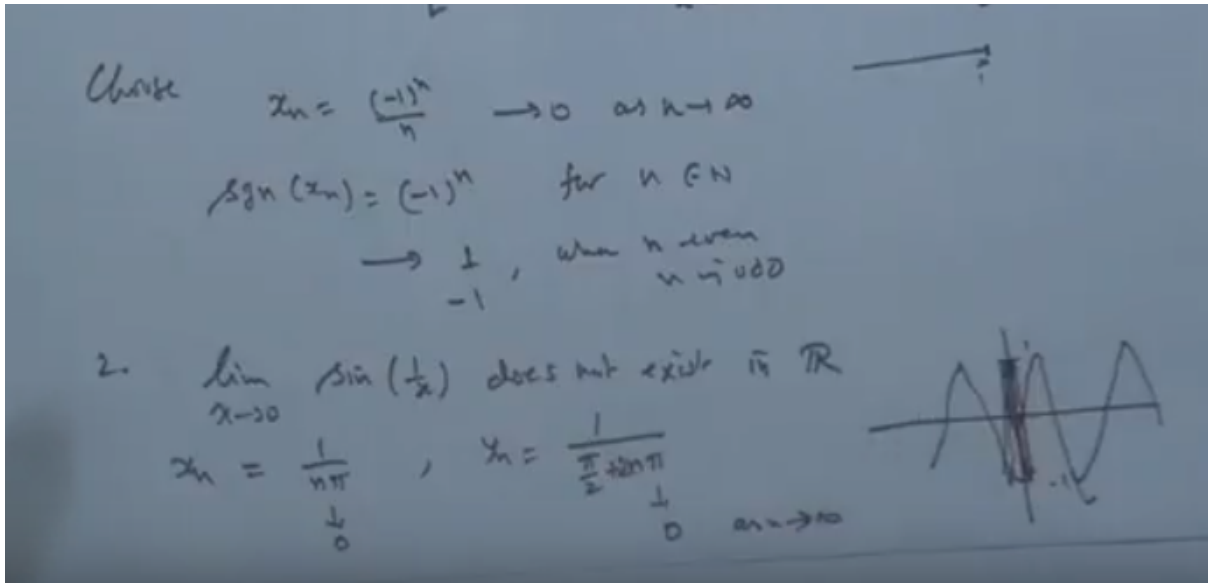 Choose xₙ = (-1)ⁿ/n → 0 as n → ∞
sgn(xₙ) = (-1)ⁿ for n ∈ N
→ 1, when n even
-1 n is odd
2. lim x→0 sin(1/x) does not exist in ℝ
xₙ = 1/(nπ), yₙ = 1/(π/2 + 2nπ)
↓ 0 ↓ 0 as n → ∞
-1